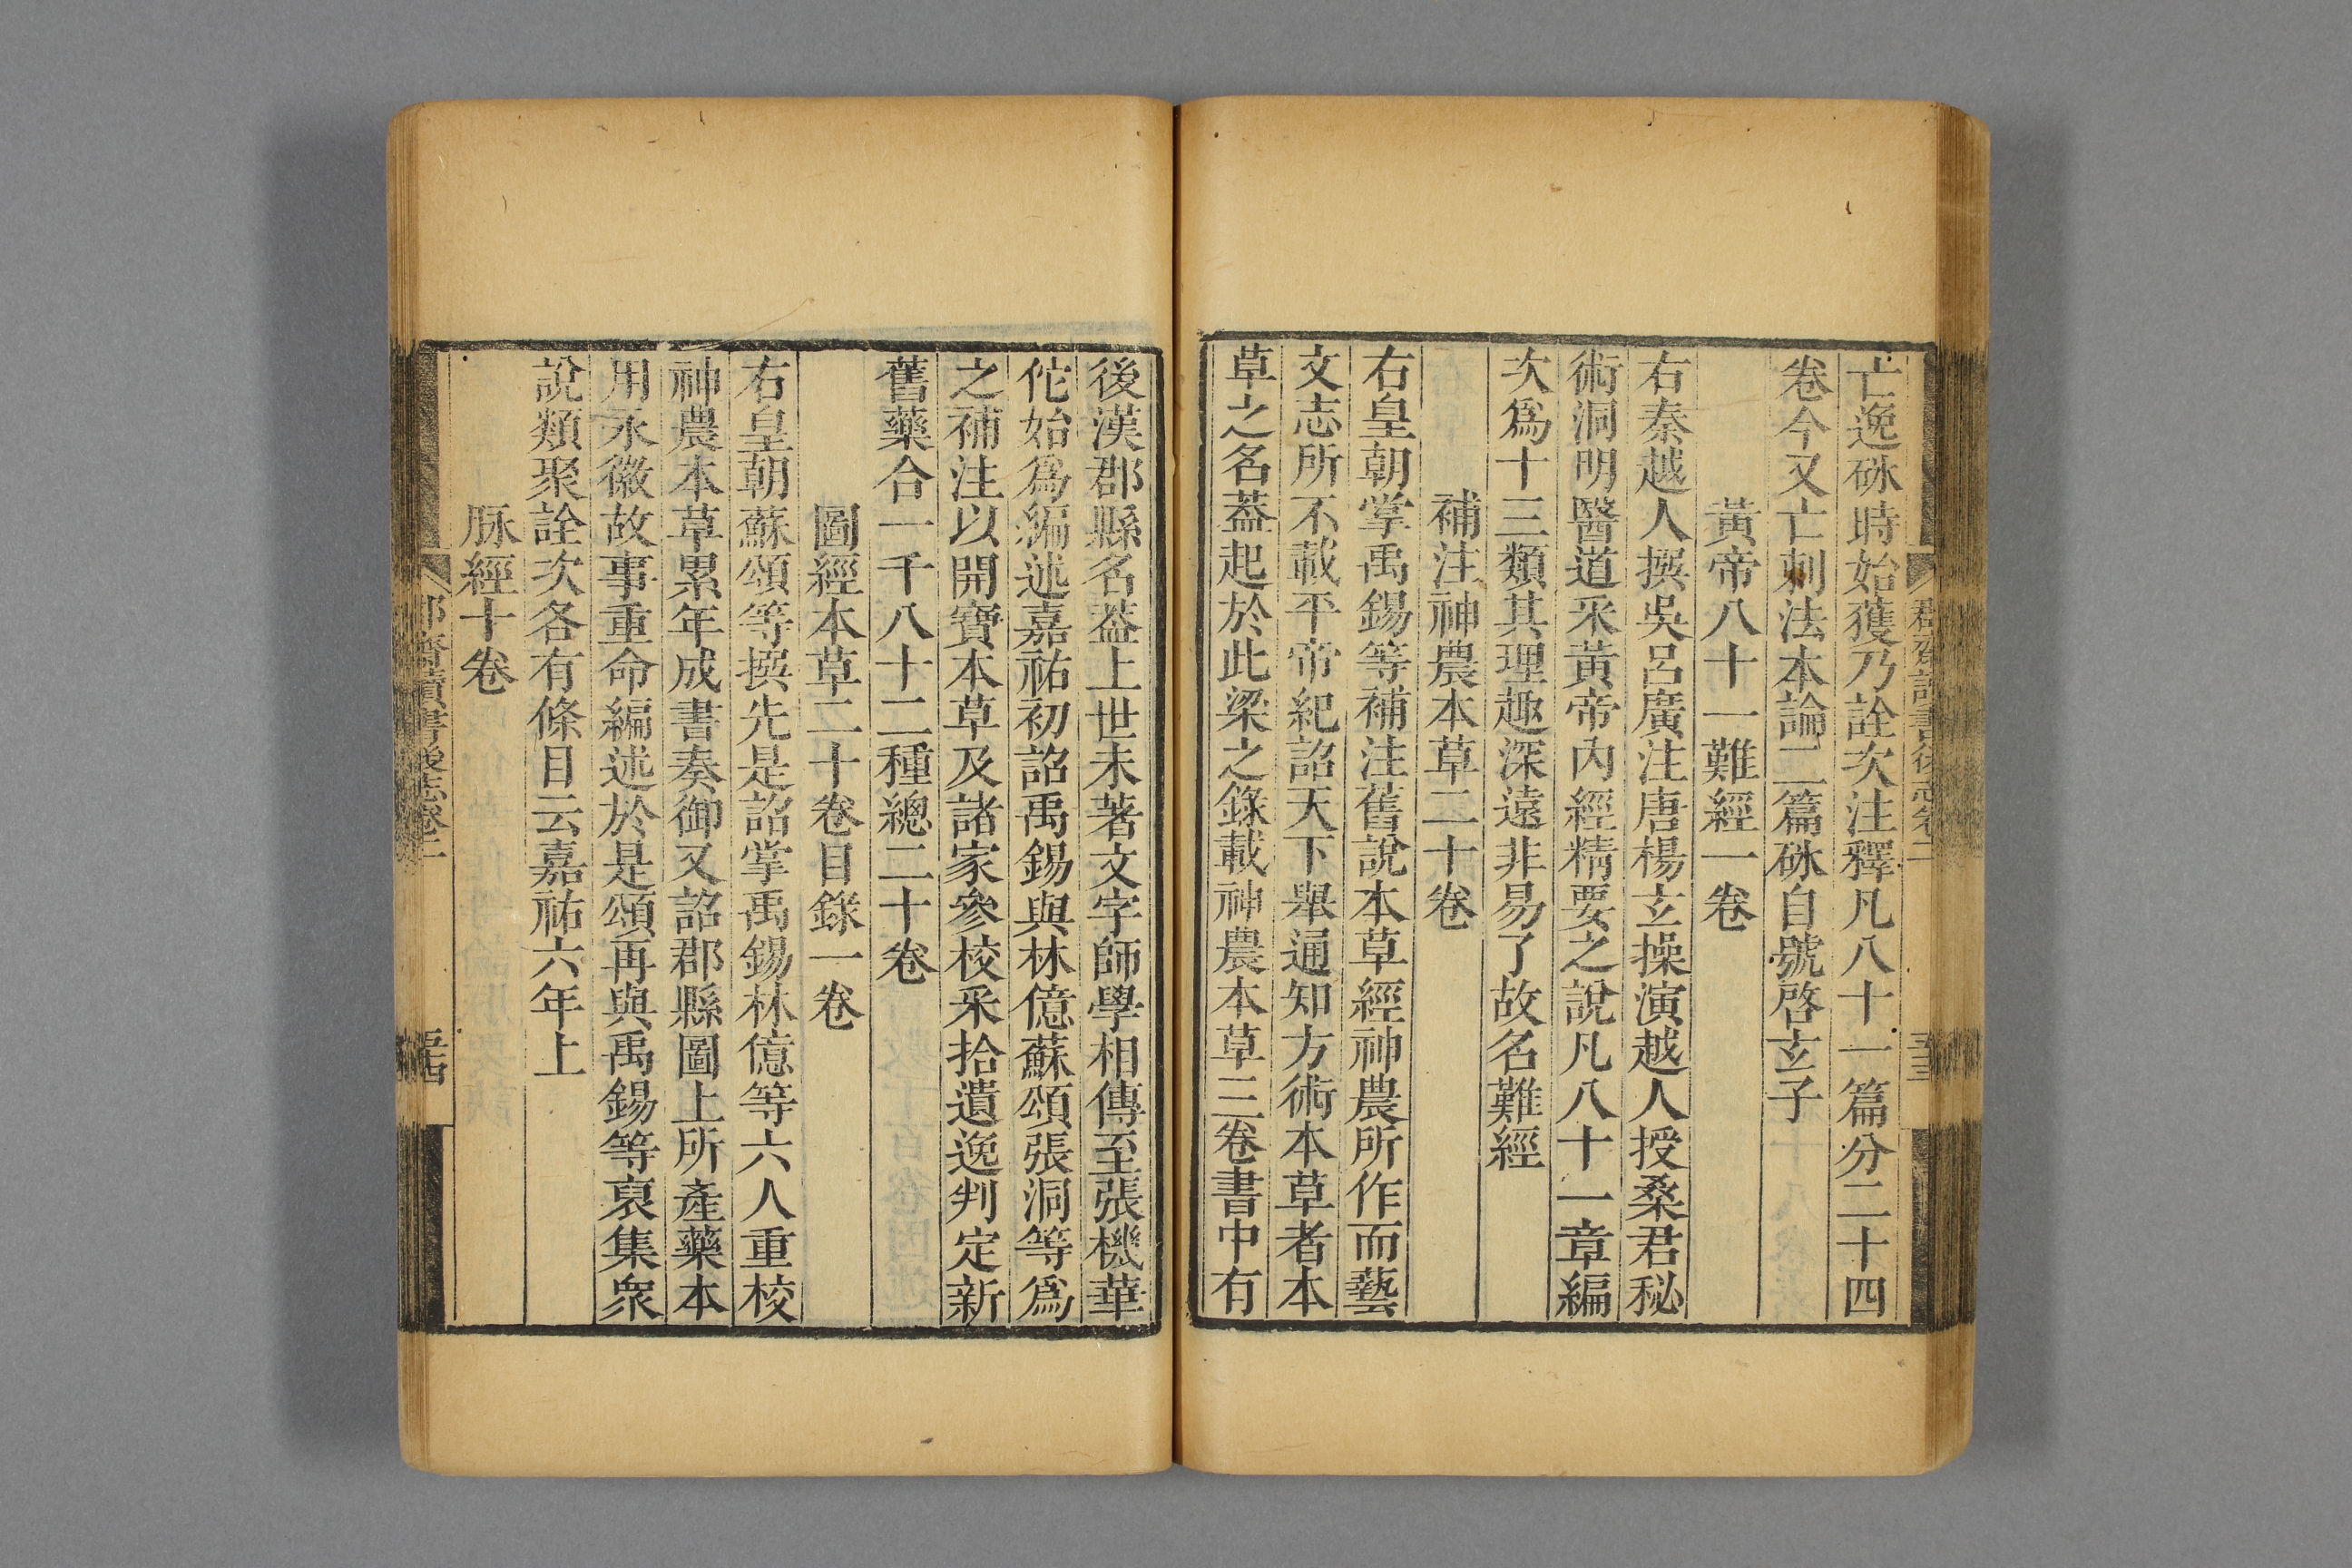 亡逸砯時始獲乃詮次注釋凡八十一篇分二十四
卷今又亡刺法本論二篇砯自號啓玄子
黃帝八十一難經一卷
右秦越人撰吳呂廣注唐楊玄操演越人授桑君秘
術洞明醫道采黃帝內經精要之說凡八十一章編
次爲十三類其理趣深遠非易了故名難經
補注神農本草二十卷
右皇朝掌禹錫等補注舊說本草經神農所作而藝
文志所不載平帝紀詔天下舉通知方術本草者本
草之名蓋起於此梁之錄載神農本草三卷書中有
後漢郡縣名蓋上世未著文字師學相傳至張機華
佗始爲編述嘉祐初詔禹錫與林億蘇頌張洞等爲
之補注以開寶本草及諸家參校采拾遺逸判定新
舊藥合一千八十二種總二十卷
圖經本草二十卷目錄一卷
右皇朝蘇頌等撰先是詔掌禹錫林億等六人重校
神農本草累年成書奏御又詔郡縣圖上所產藥本
用永徽故事重命編述於是頌再與禹錫等裒集衆
說類聚詮次各有條目云嘉祐六年上
脉經十卷
郡齋讀書後志卷二
五十四